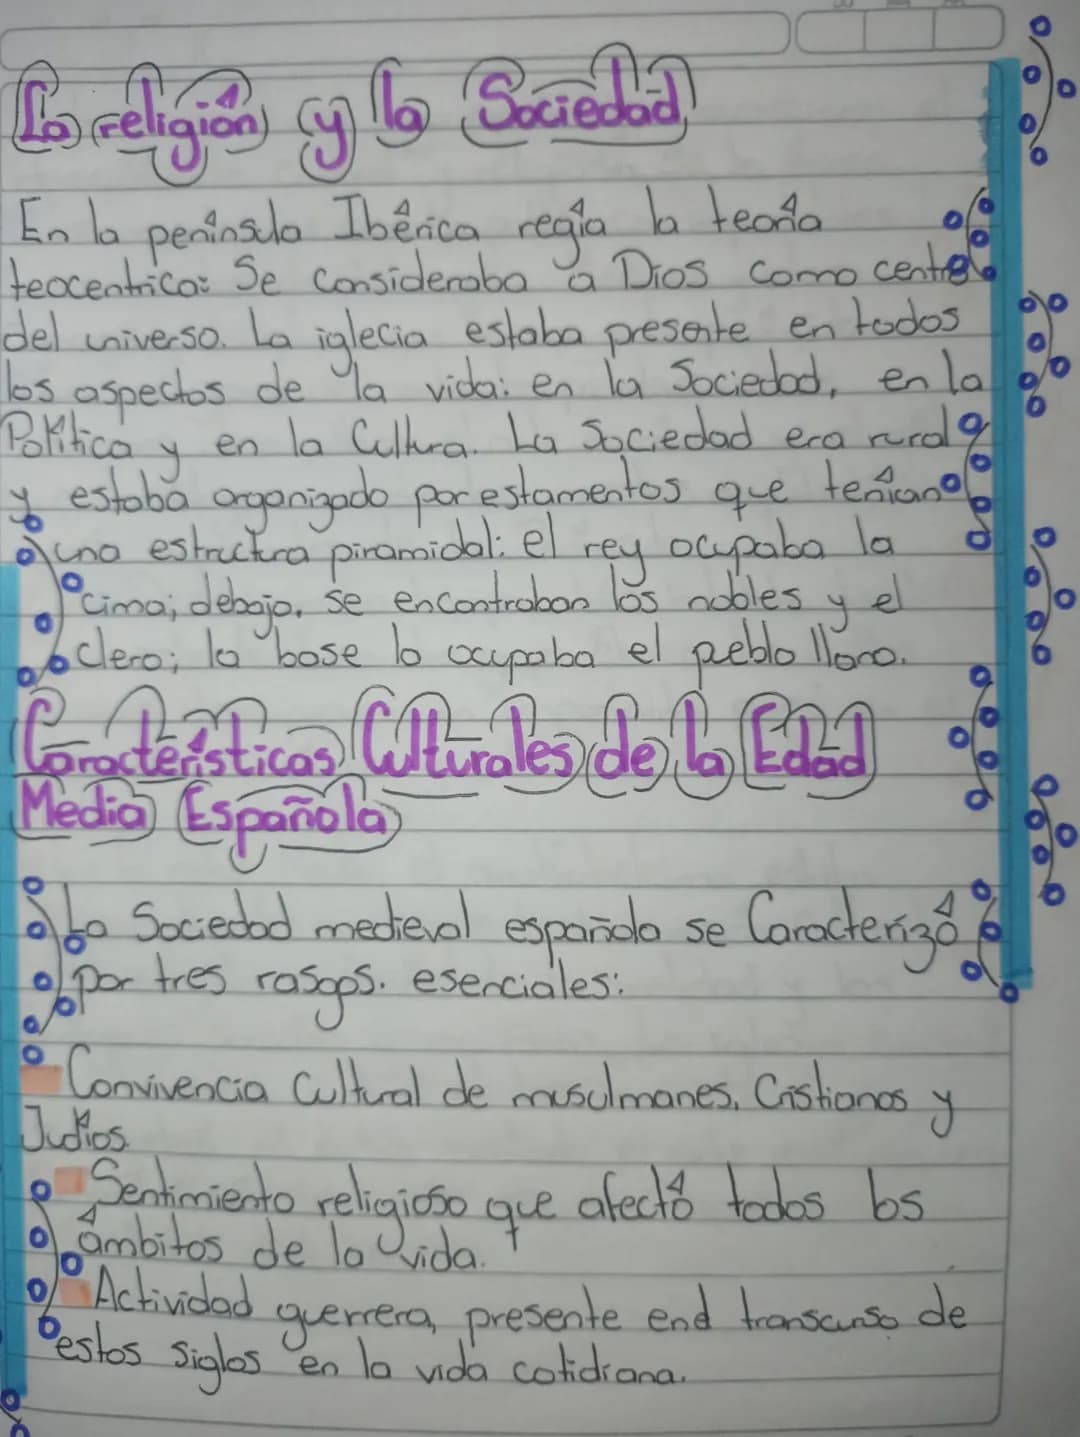 La religión y la Sociedad
En la península Ibérica regía la teoría
teocentrica: Se consideraba a Dios como centro
del universo. La iglecia estaba presente en todos
los aspectos de la vida: en la Sociedad, en la
Política y en la Cultura. La Sociedad era rural
y estaba organizado por estamentos que tenían
una estructura piramidal: el rey ocupaba la
cima; debajo, se encontraban los nobles y el
clero; la base lo ocupaba el peblo llano.
Características Culturales de la Edad
Media Española
La Sociedad medieval española se Caracterizó
por tres rasgos. esenciales:
Convivencia Cultural de musulmanes, Cristianos y
Judíos.
Sentimiento religioso que afectó todos los
ámbitos de la vida.
Actividad guerrera, presente end transcurso de
estos siglos en la vida cotidiana.